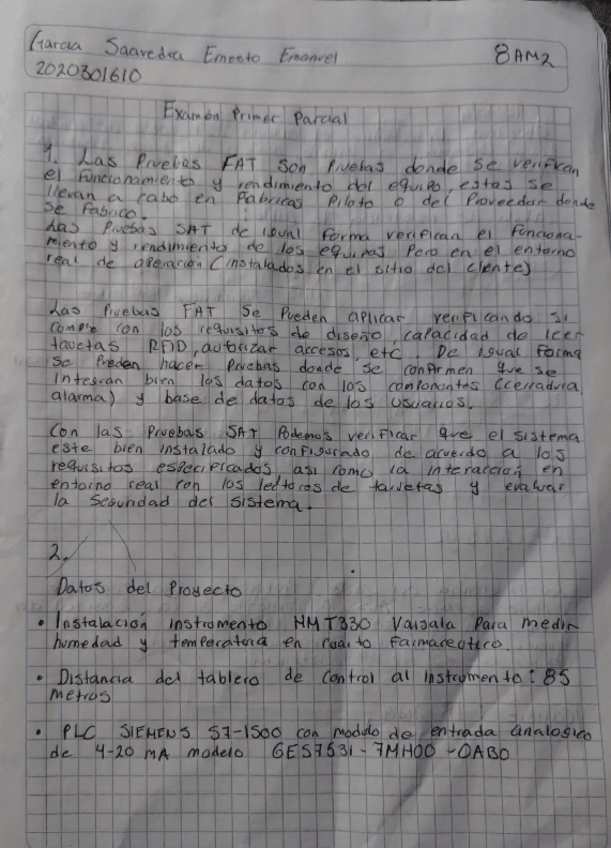 Garcia Saavedra Ernesto Emanuel 8AM2
2020301610
Examen Primer Parcial
1. Las Pruebas FAT son Pruebas donde se verifican
el funcionamiento y rendimiento del equipo, estas se
llevan a cabo en Fabricas Piloto o del Proveedor donde
se Fabrico.
Las Pruebas SAT de igual forma verifican el funciona-
miento y rendimiento de los equipos Pero en el entorno
real de operación (instalados en el sitio del cliente)
Las Pruebas FAT se Pueden aplicar verificando si
cumple con los requisitos de diseño, capacidad de leer
tarjetas RFID, autorizar accesos, etc. De igual forma
se Pueden hacer Pruebas donde se confirmen que se
integran bien los datos con los componentes (cerradura,
alarma) y base de datos de los usuarios.
Con las Pruebas SAT Podemos verificar que el sistema
este bien instalado y configurado de acuerdo a los
requisitos especificados asi como la interacción en
entorno real con los lectores de tarjetas y evaluar
la seguridad del sistema.
2.
Datos del Proyecto
• Instalación instrumento HMT330 Vaisala Para medir
humedad y temperatura en cuarto farmaceutico.
• Distancia del tablero de control al instrumento: 85
metros
• PLC SIEMENS S7-1500 con modulo de entrada analogico
de 4-20 mA modelo 6ES7531-7MH00-0AB0